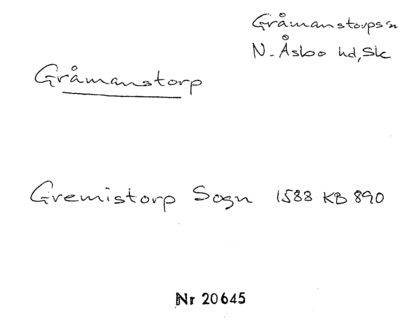 Gråmanstorps sn
N. Åsbo hd, Sk
Gråmanstorp
Gremistorp Sogn 1588 KB 890
Nr 20645